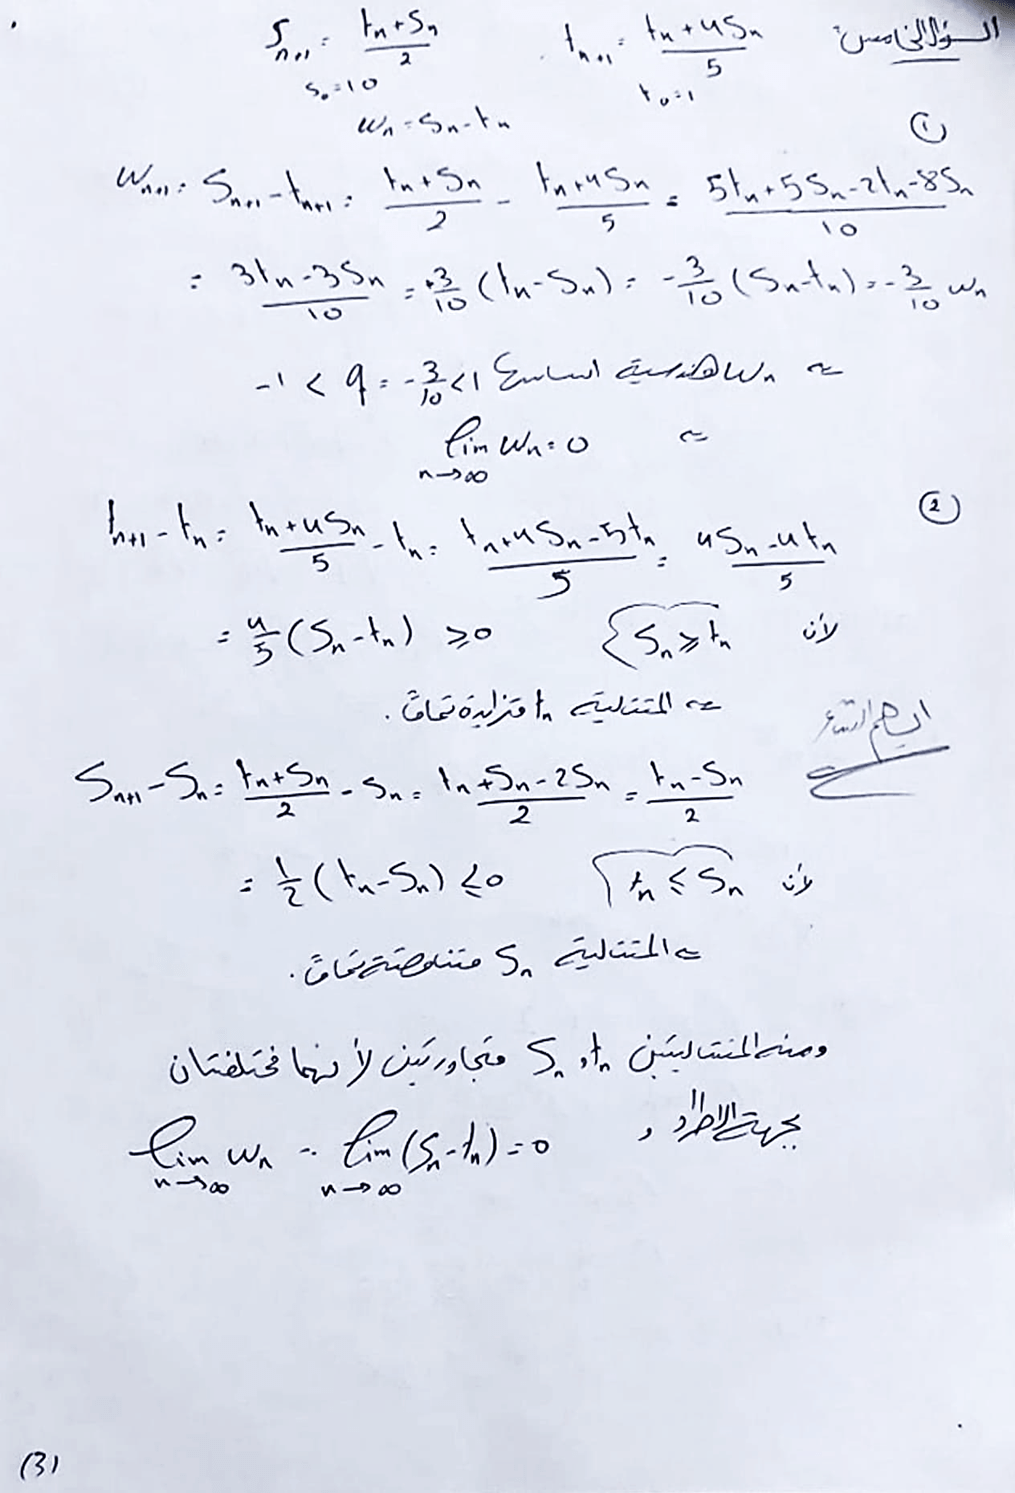 السؤال الخامس: t_{n+1} = \frac{t_n + 4S_n}{5} . S_{n+1} = \frac{t_n + S_n}{2}
t_0 = 1 S_0 = 10
W_n = S_n - t_n
①
W_{n+1} = S_{n+1} - t_{n+1} = \frac{t_n + S_n}{2} - \frac{t_n + 4S_n}{5} = \frac{5t_n + 5S_n - 2t_n - 8S_n}{10}
= \frac{3t_n - 3S_n}{10} = +\frac{3}{10}(t_n - S_n) = -\frac{3}{10}(S_n - t_n) = -\frac{3}{10} W_n
⇐ W_n هندسية أساسها -1 < q = -\frac{3}{10} < 1
⇐ \lim_{n→∞} W_n = 0
②
t_{n+1} - t_n = \frac{t_n + 4S_n}{5} - t_n = \frac{t_n + 4S_n - 5t_n}{5} = \frac{4S_n - 4t_n}{5}
= \frac{4}{5}(S_n - t_n) ≥ 0 لأن S_n ≥ t_n
⇐ المتتالية t_n متزايدة تماماً.
S_{n+1} - S_n = \frac{t_n + S_n}{2} - S_n = \frac{t_n + S_n - 2S_n}{2} = \frac{t_n - S_n}{2}
= \frac{1}{2}(t_n - S_n) ≤ 0 لأن t_n ≤ S_n
⇐ المتتالية S_n متناقصة تماماً.
ومنه المتتاليتين t_n و S_n متجاورتين لأنهما مختلفتان
بجهة الاطراد و
\lim_{n→∞} W_n = \lim_{n→∞} (S_n - t_n) = 0
(3)